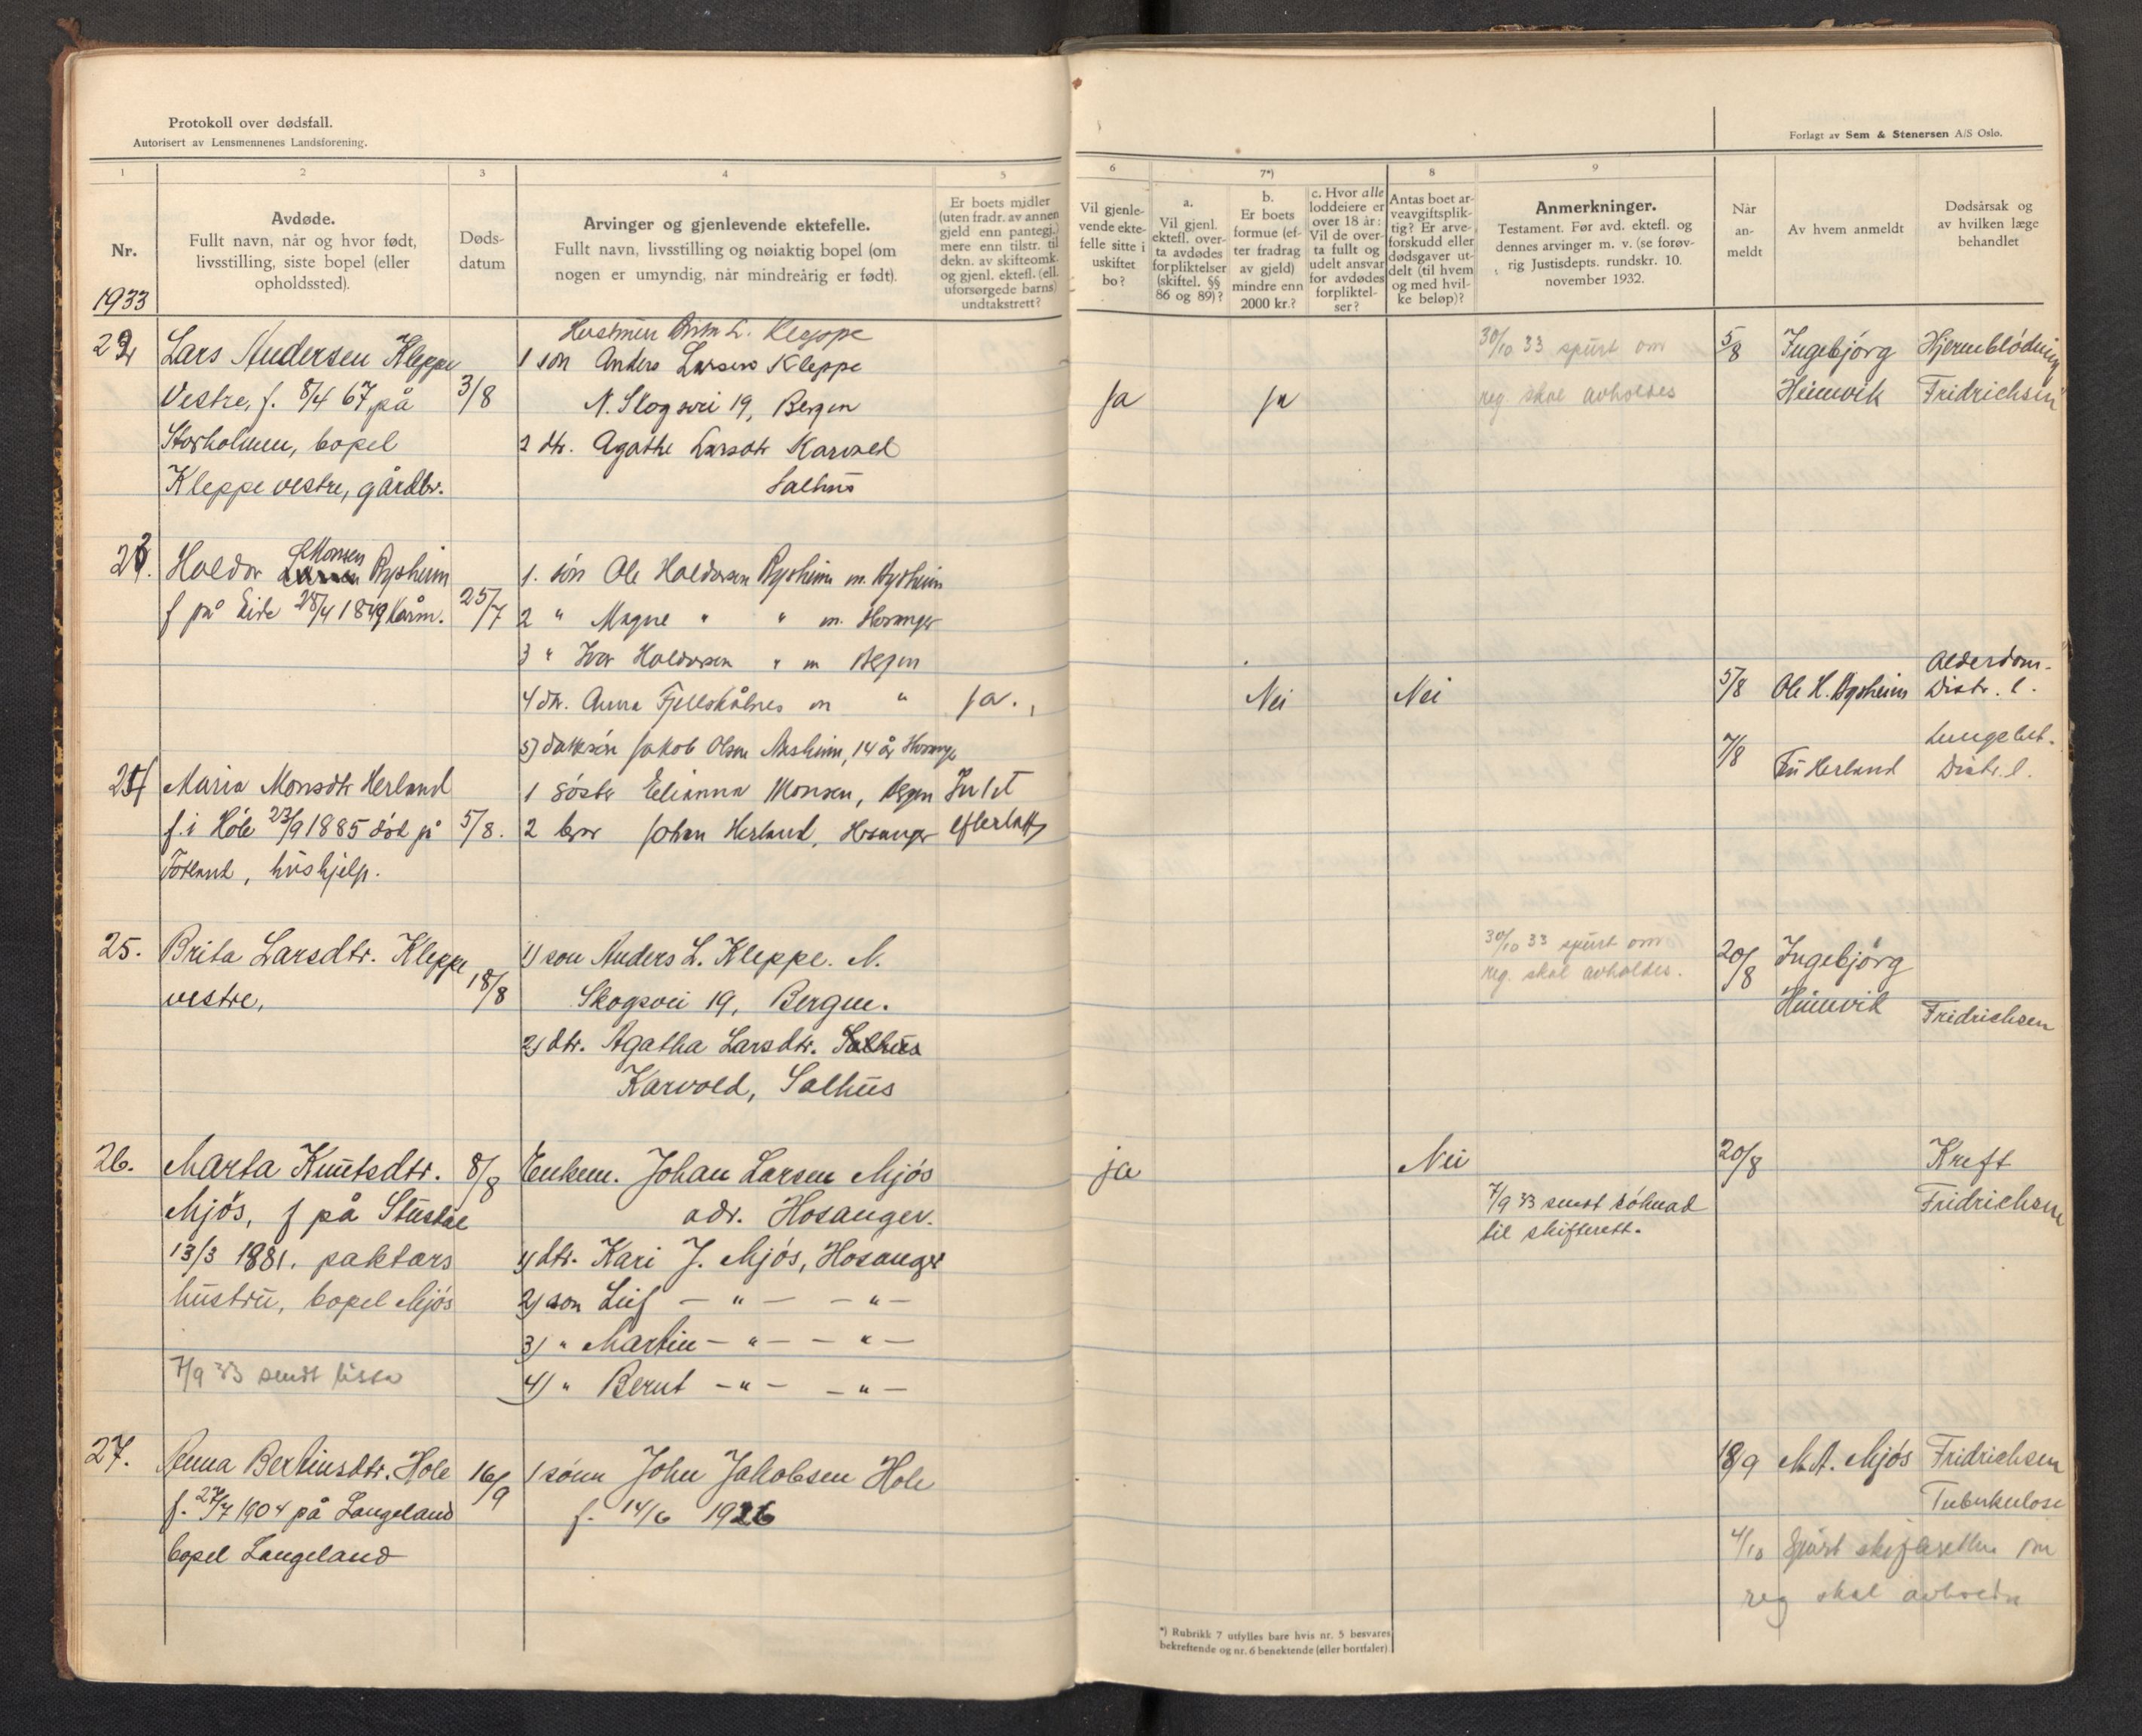 Protokoll over dødsfall.
Autorisert av Lensmennenes Landsforening.
1
2
3
4
5
Nr.
Avdøde.
Fullt navn, når og hvor født,
livsstilling, siste bopel (eller
opholdssted).
Døds-
datum
Arvinger og gjenlevende ektefelle.
Fullt navn, livsstilling og nøiaktig bopel (om
nogen er umyndig, når mindreårig er født).
Er boets midler
(uten fradr. av annen
gjeld enn pantegj.)
mere enn tilstr. til
dekn. av skifteomk.
og gjenl. ektefl. (ell.
uforsørgede barns)
undtakstrett?
1933
22
Lars Andersen Kleppe
Vestre, f. 8/4 67, på
Storholmen, bopel
Kleppe vestre, gårdbr.
3/8
L. Kleppe
1 son Anders Larsen Kleppe
N. Skogsvei 19, Bergen
2 dtr. Agathe Larsdtr Karvold
Salhus
23.
Haldor Monsen Bysheim
f på Eide 28/4 1849 kårm.
25/7
1. søn Ole Haldorsen Bysheim m. Bysheim
2 " Magne " " m. Hosanger
3 " Ivar Haldorsen " m Bergen
4 dtr. Anna Fjellskålnes m "
ja.
5) dattersøn Jakob Olsen 14 år Hosanger
24
Maria Monsdtr Herland
f. i Hole 23/9 1885 død på
Totland, hushjelp.
5/8.
1 søster Elianna Monsen, Bergen
2 bror Johan Herland, Hosanger
Intet
efterlatt
25.
Brita Larsdtr. Kleppe
vestre,
18/8
1) son Anders L. Kleppe. N.
Skogsvei 19, Bergen.
2) dtr. Agatha Larsdtr. Salhus
Karvold, Salhus
26.
Marta Knutsdtr.
Mjøs, f på Stusdal
13/3 1881. paktars
hustru, bopel Mjøs
7/9 33 sendt lista
8/8
Enkem. Johan Larsen Mjøs
adr. Hosanger.
1) dtr. Kari J. Mjøs, Hosanger
2) son Leif — " — — " —
3) " Martin — " — — " —
4) " Bernt — " — — " —
27.
Anna Bertinsdtr. Hole
f. 27/7 1904 på Langeland
bopel Langeland
16/9
1 sønn John Jakobsen Hole
f. 14/6 1926
Forlagt av Sem & Stenersen A/S Oslo.
6
7*)
8
9
Vil gjenle-
vende ekte-
felle sitte i
uskiftet
bo?
a.
Vil gjenl.
ektefl. over-
ta avdødes
forpliktelser
(skiftel. §§
86 og 89)?
b.
Er boets
formue (ef-
ter fradrag
av gjeld)
mindre enn
2000 kr.?
c. Hvor alle
loddeiere er
over 18 år:
Vil de over-
ta fullt og
udelt ansvar
for avdødes
forpliktel-
ser?
Antas boet ar-
veavgiftsplik-
tig? Er arve-
forskudd eller
dødsgaver ut-
delt (til hvem
og med hvil-
ke beløp)?
Anmerkninger.
Testament. Før avd. ektefl. og
dennes arvinger m. v. (se forøv-
rig Justisdepts. rundskr. 10.
november 1932.
Når
an-
meldt
Av hvem anmeldt
Dødsårsak og
av hvilken læge
behandlet
ja
ja
30/10 33 spurt om
reg. skal avholdes
5/8
Ingebjørg
Heimvik
Hjerneblødning
Fridrichsen
Nei
Nei
5/8
Ole H. Bysheim
Alderdom.
Distr. l.
7/8
Herland
Lungebet.
Distr. l.
30/10 33 spurt om
reg. skal avholdes.
20/8
Ingebjørg
Heimvik
Fridrichsen
ja
Nei
7/9 33 sendt søknad
til skifterett.
20/8
Kreft
Fridrichsen
18/9
M. A. Mjøs
Fridrichsen
Tuberkulose
4/10 spurt skifteretten om
reg skal avholdes
*) Rubrikk 7 utfylles bare hvis nr. 5 besvares
bekreftende og nr. 6 benektende (eller bortfaler)